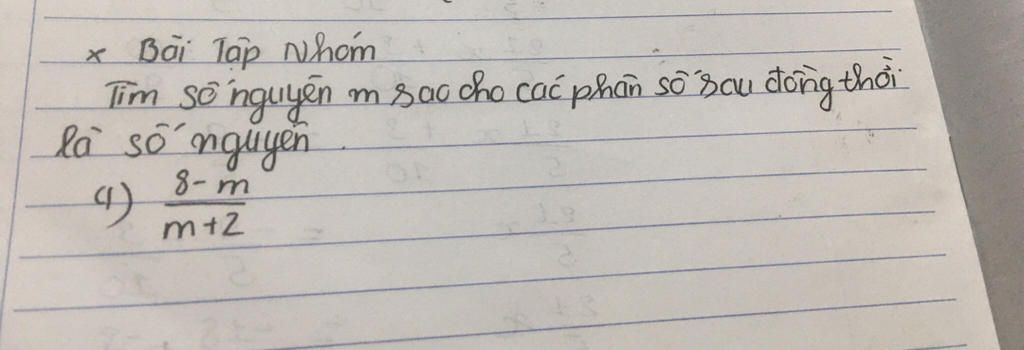 x Bài Tập Nhóm
Tìm số nguyên m sao cho các phân số sau đồng thời
là số nguyên.
a) \frac{8-m}{m+2}